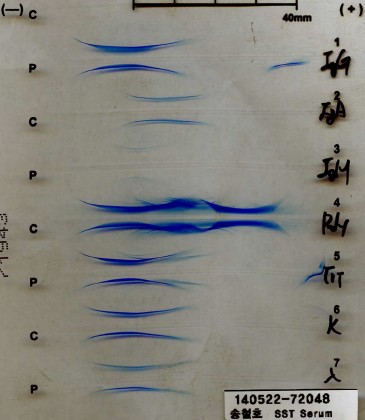 (—) C 40mm (+)
1
P IgG
2
C IgA
3
P IgM
4
C
5
P
6
C K
7
P λ
140522-72048
송철호 SST Serum